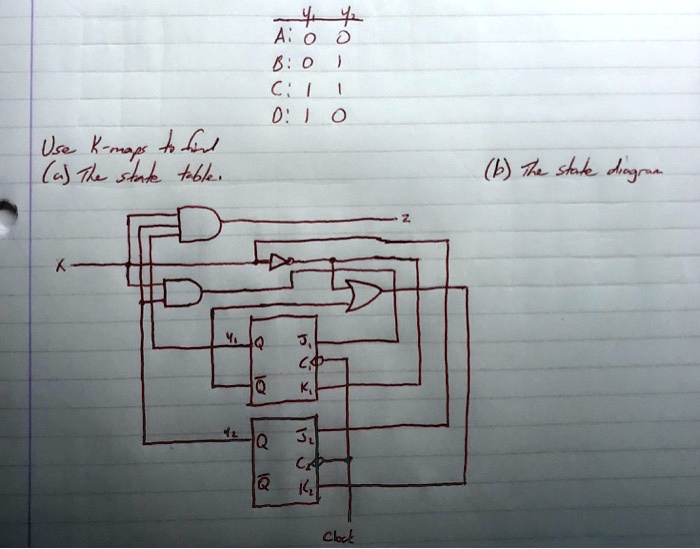 y₁ y₂
A: 0 0
B: 0 1
C: 1 1
D: 1 0
Use K-maps to find
(a) The state table.
(b) The state diagram
z
x
y₁ Q J₁
C₁
Q̅ K₁
y₂ Q J₂
C₂
Q̅ K₂
Clock